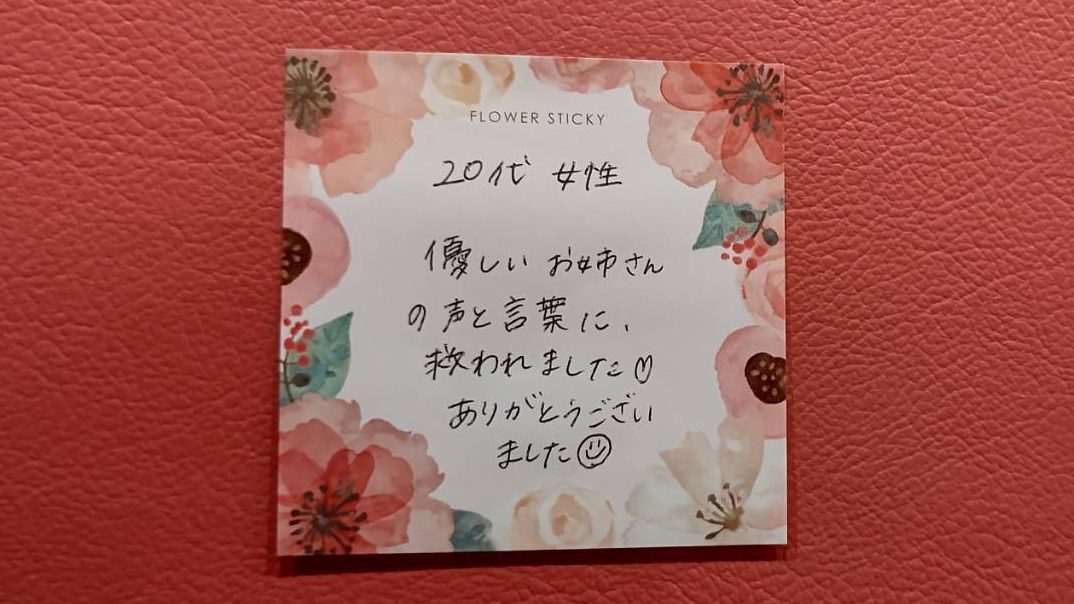 FLOWER STICKY
20代 女性
優しい お姉さん
の声と言葉に、
救われました♡
ありがとうござい
ました☺